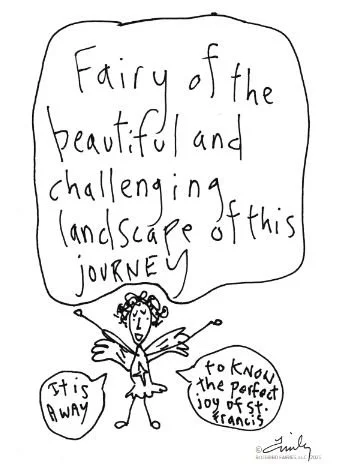 Fairy of the
beautiful and
challenging
landscape of this
JOURNEY
It is
A WAY
to KNOW
the perfect
joy of st.
Francis